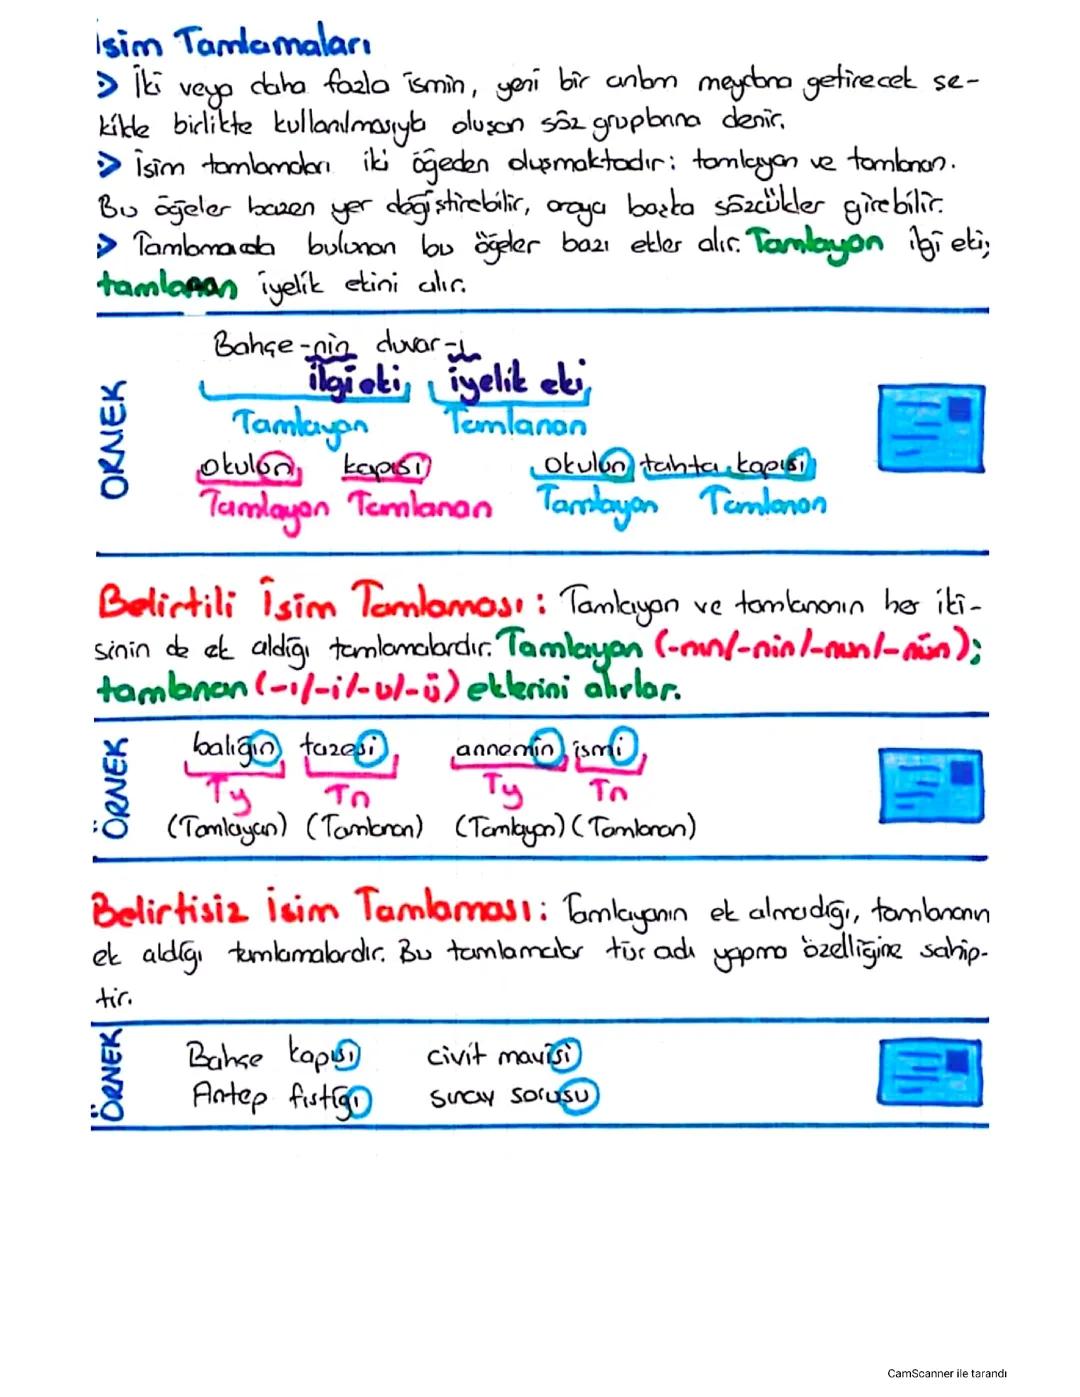 İsim Tamlamaları
> İki veya daha fazla ismin, yeni bir anlam meydana getirecek şe-
kilde birlikte kullanılmasıyla oluşan söz gruplarına denir.
> İsim tamlamaları iki öğeden oluşmaktadır: tamlayan ve tamlanan.
Bu öğeler bazen yer değiştirebilir, araya başka sözcükler girebilir.
> Tamlamada bulunan bu öğeler bazı ekler alır. Tamlayan ilgi eki;
tamlanan iyelik ekini alır.
ÖRNEK
Bahçe-nin duvar-ı
ilgi eki, iyelik eki,
Tamlayan Tamlanan
okulun kapısı okulun tahta kapısı
Tamlayan Tamlanan Tamlayan Tamlanan
Belirtili İsim Tamlaması: Tamlayan ve tamlananın her iki-
sinin de ek aldığı tamlamalardır. Tamlayan (-nın/-nin/-nun/-nün);
tamlanan (-ı/-i/-u/-ü) eklerini alırlar.
ÖRNEK
balığın tazesi, annemin ismi,
Ty Tn Ty Tn
(Tamlayan) (Tamlanan) (Tamlayan) (Tamlanan)
Belirtisiz İsim Tamlaması: Tamlayanın ek almadığı, tamlananın
ek aldığı tamlamalardır. Bu tamlamalar tür adı yapma özelliğine sahip-
tir.
ÖRNEK
Bahçe kapısı civit mavisi
Antep fıstığı sınav sorusu
CamScanner ile tarandı